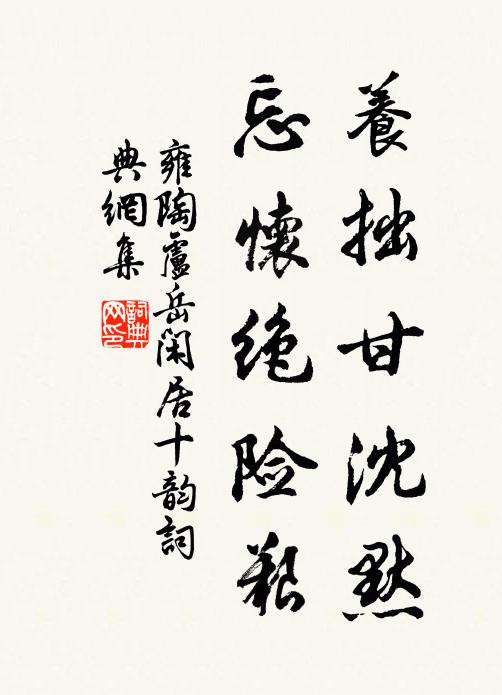 養拙甘沈默
忘懷绝险艱
雍陶廬岳閑居十韵詞
典網集
詞典網印